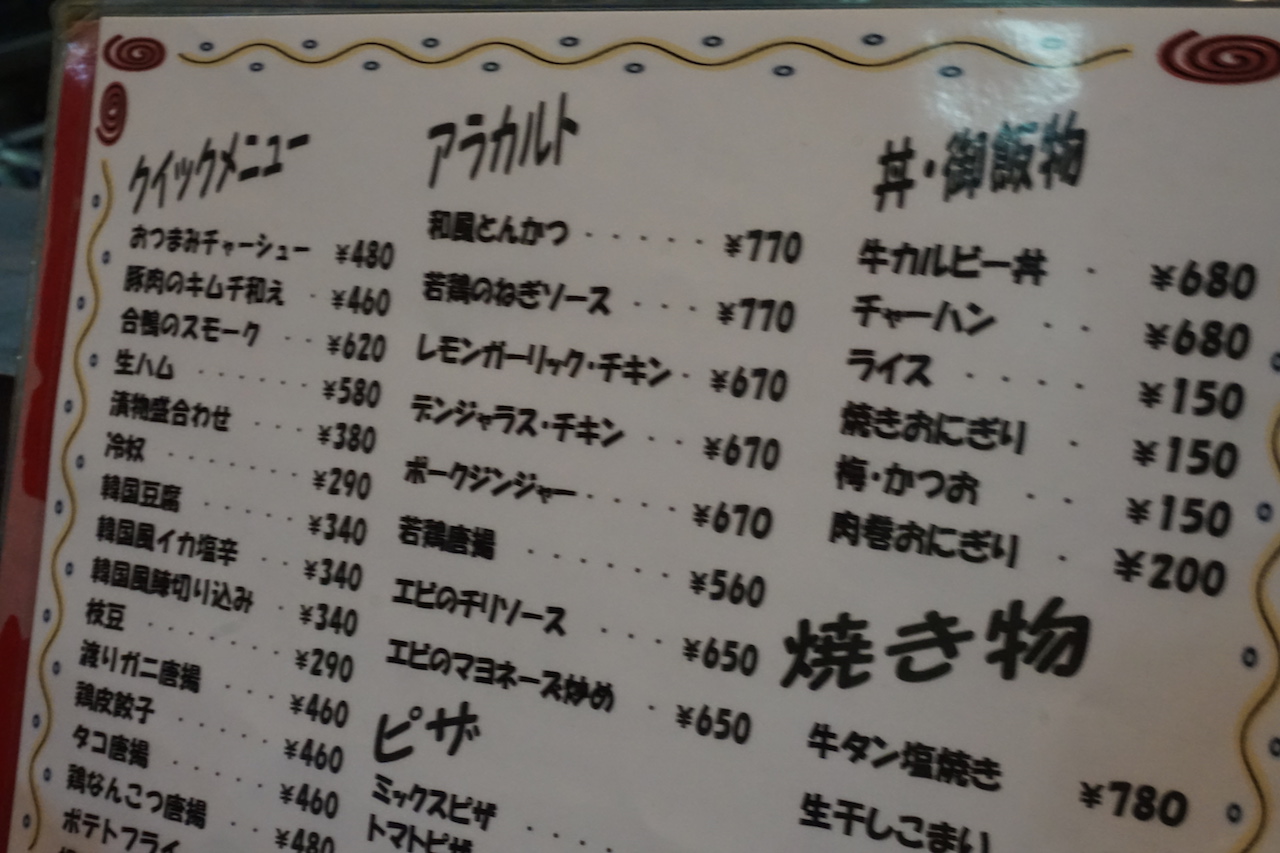 クイックメニュー
おつまみチャーシュー ¥480
豚肉のキムチ和え ・ ¥460
合鴨のスモーク ・・ ¥620
生ハム ・・・・・・ ¥580
漬物盛合わせ ・・・ ¥380
冷奴 ・・・・・・・ ¥290
韓国豆腐 ・・・・・ ¥340
韓国風イカ塩辛 ・・ ¥340
韓国風陳切り込み ・ ¥340
枝豆 ・・・・・・・ ¥290
渡りガニ唐揚 ・・・ ¥460
鶏皮餃子 ・・・・・ ¥460
タコ唐揚 ・・・・・ ¥460
鶏なんこつ唐揚 ・・ ¥480
ポテトフライ
アラカルト
和風とんかつ ・・・・・ ¥770
若鶏のねぎソース ・・・ ¥770
レモンガーリック・チキン ・ ¥670
デンジャラス・チキン ・・ ¥670
ポークジンジャー ・・・・ ¥670
若鶏唐揚 ・・・・・・ ¥560
エビのチリソース ・・・ ¥650
エビのマヨネーズ炒め ・ ¥650
ピザ
ミックスピザ ・・・
トマトピザ
丼・御飯物
牛カルビー丼 ・ ¥680
チャーハン ・・ ¥680
ライス ・・・・ ¥150
焼きおにぎり ・ ¥150
梅・かつお ・・ ¥150
肉巻おにぎり ・ ¥200
焼き物
牛タン塩焼き ¥780
生干しこまい